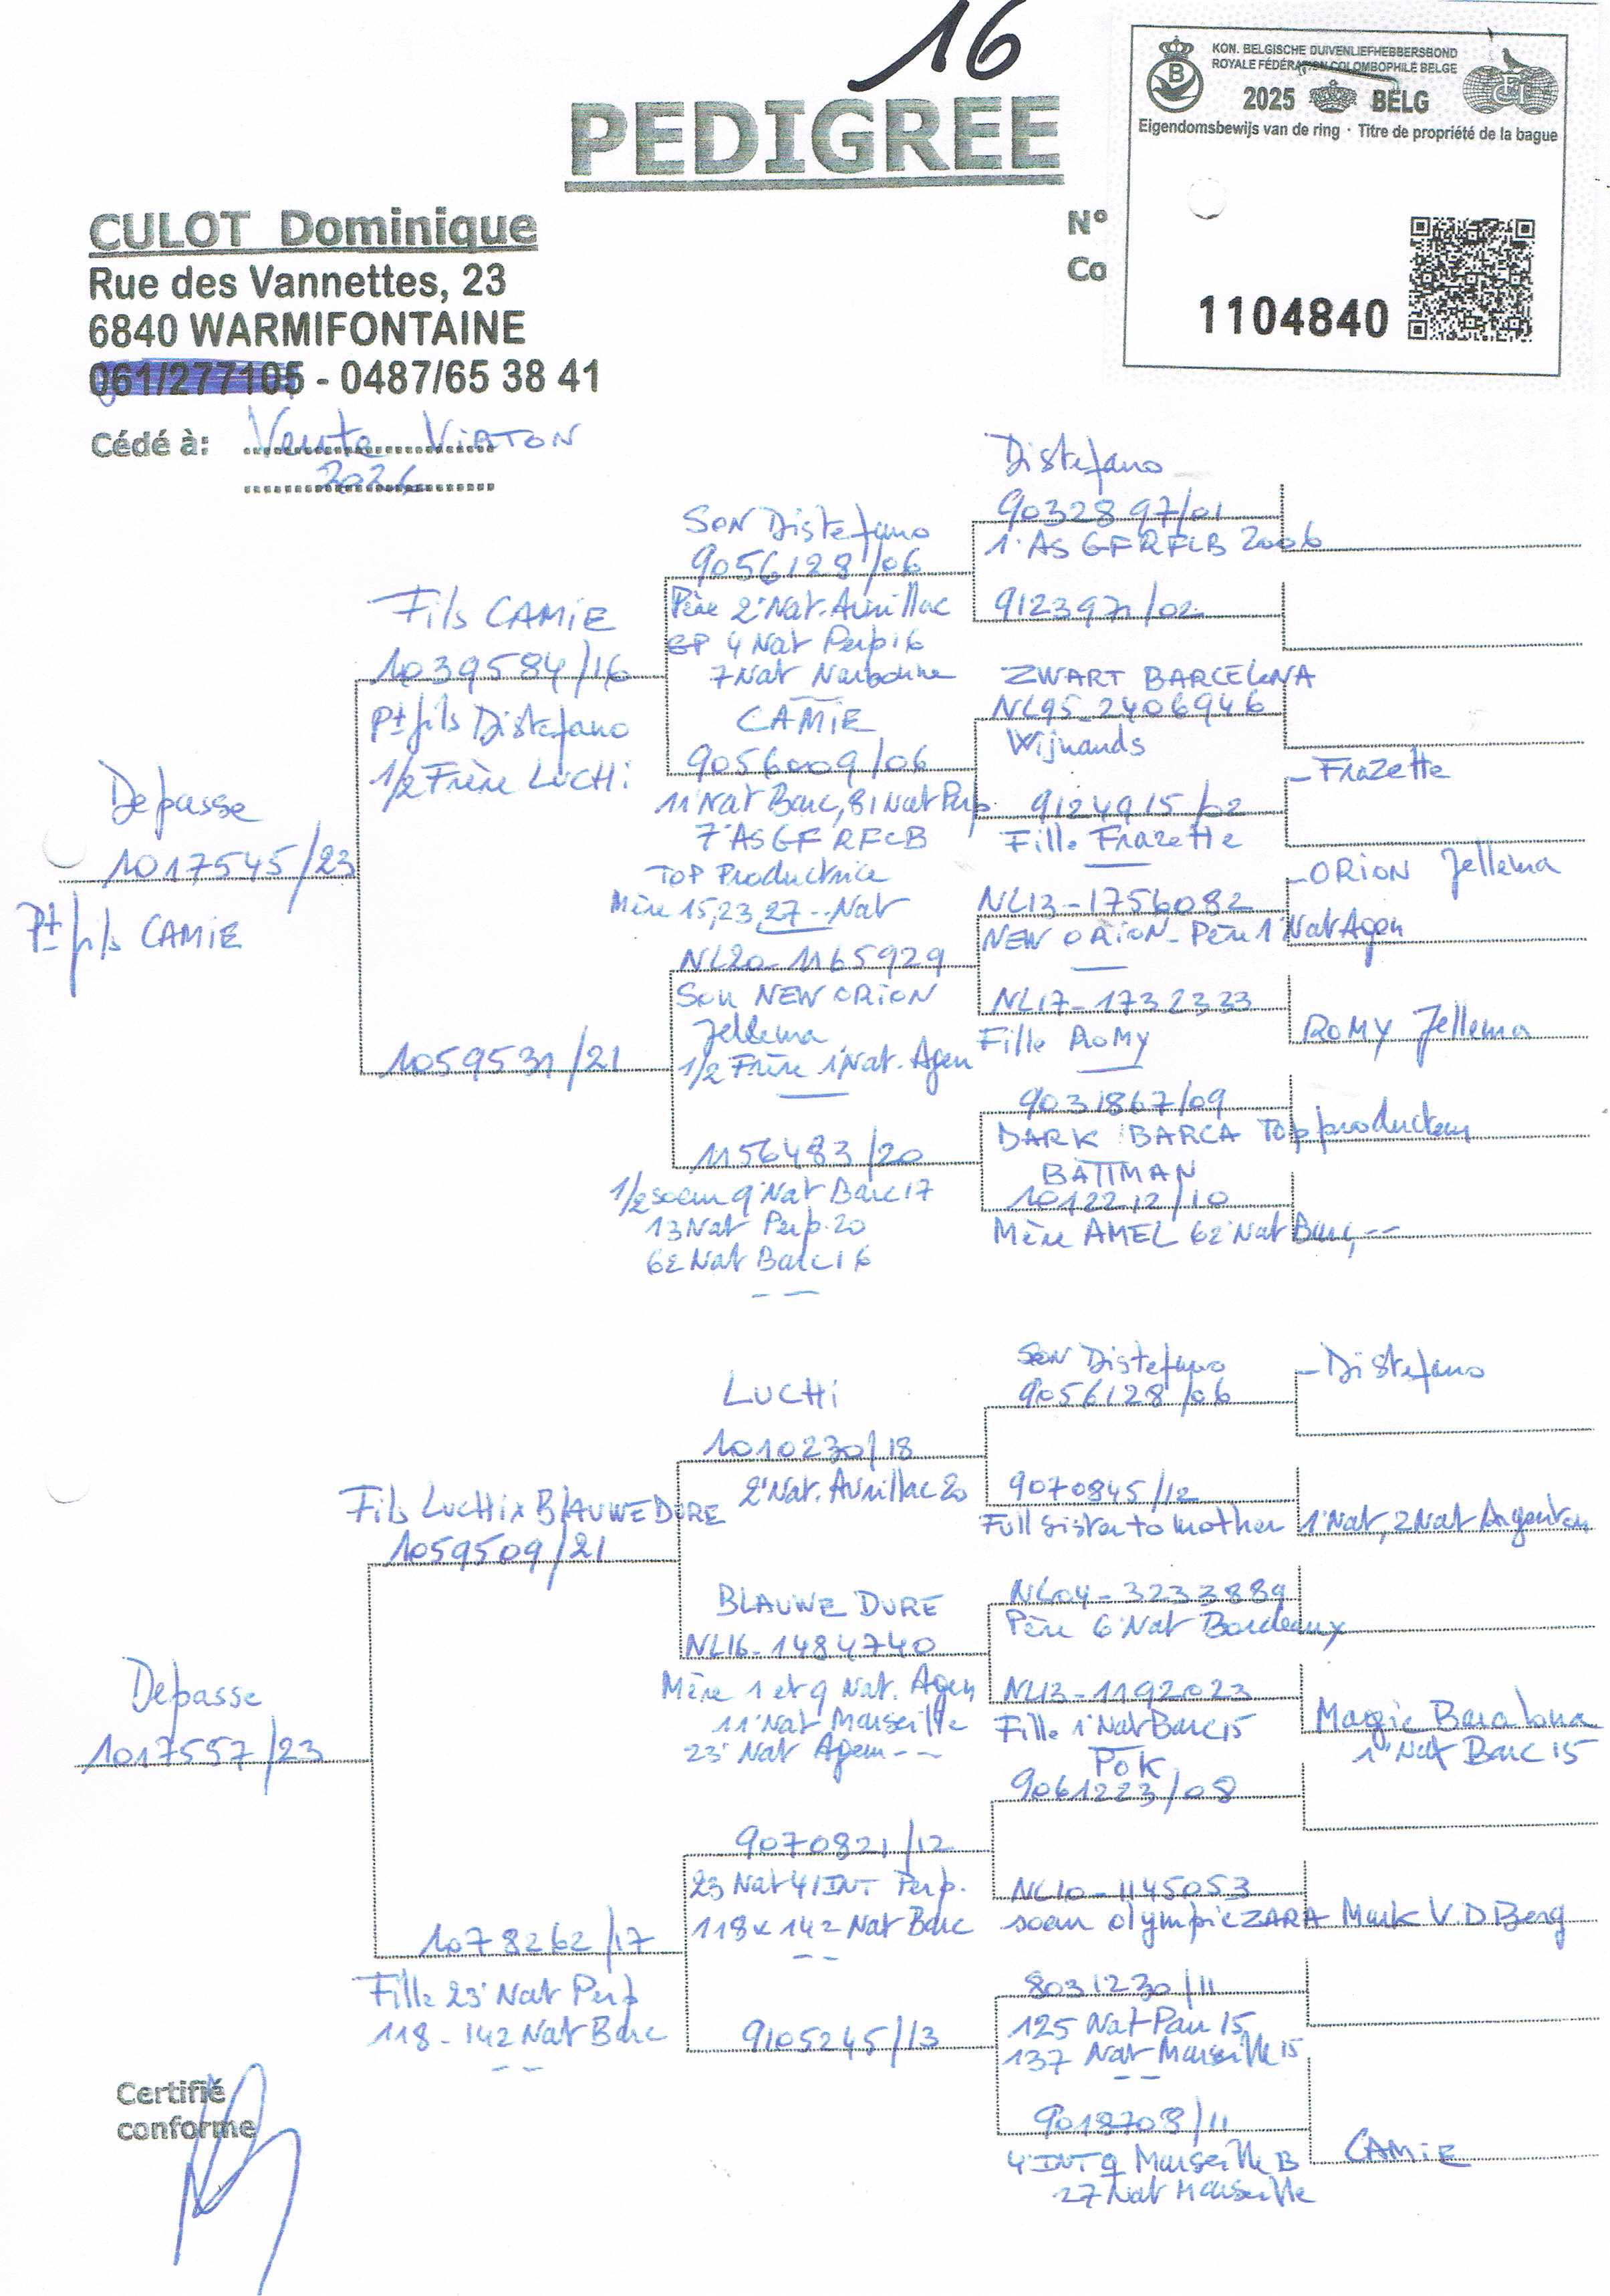 16
PEDIGREE
KON. BELGISCHE DUIVENLIEFHEBBERSBOND
ROYALE FÉDÉRATION COLOMBOPHILE BELGE
2025 BELG
Eigendomsbewijs van de ring · Titre de propriété de la bague
1104840
N°
Co
CULOT Dominique
Rue des Vannettes, 23
6840 WARMIFONTAINE
061/277105 - 0487/65 38 41
Cédé à: Vente VIRTON
2026
Depasse
1017545/23
Pt fils CAMIE
Fils CAMIE
1039584/16
Pt fils Distefano
1/2 Frère LUCHI
1059531/21
SON Distefano
9056128/06
Père 2'Nat.Aurillac
GP 4 Nat Perpi6
7Nat Narbonne
CAMIE
9056009/06
11'Nat Barc, 81 Nat Perp
7'AS GF RFCB
TOP Productrice
Mère 15,23,27--Nat
NL20-1165929
Son NEW ORION
Jellema
1/2 Frère 1'Nat. Agen
1156483/20
1/2 soeur 9'Nat Barc17
13Nat Perp.20
62 Nat Barc16
Distefano
9032897/01
1'AS GF RFCB 2006
9123971/02
ZWART BARCELONA
NL95-2406946
Wijnands
9124915/02
Fille Frazette
Frazette
NL13-1756082
NEW ORION - Père 1'Nat Agen
ORION Jellema
NL17-1732333
Fille ROMY
ROMY Jellema
9031867/09
DARK BARCA Top producteur
BATTMAN
1012212/10
Mère AMEL 62'Nat Barc,--
Depasse
1017557/23
Fils LUCHI x BLAUWE DURE
1059509/21
1078262/17
Fille 23'Nat Perp
118-142 Nat Barc
LUCHI
1010230/18
2'Nat. Aurillac 20
BLAUWE DURE
NL16-1484740
Mère 1 et 9 Nat. Agen
11'Nat Marseille
23'Nat Agen--
9070821/12
23 Nat 41INT Perp.
118 x 142 Nat Barc
9105245/13
SON Distefano
9056128/06
Distefano
9070845/12
Full sister to mother 1'Nat, 2Nat Argenton
NL04-3233889
Père 6'Nat Bordeaux
NL13-1192023
Fille 1'Nat Barc15
Magic Barcelona
1'Nat Barc 15
POK
9061223/08
NL10-1145053
soeur olympic ZARA Mark V.D Berg
8031230/11
125 Nat Pau 15
137 Nat Marseille 15
9018708/11
4'INT ♀ Marseille B
27 Nat Marseille
CAMIE
Certifié
conforme